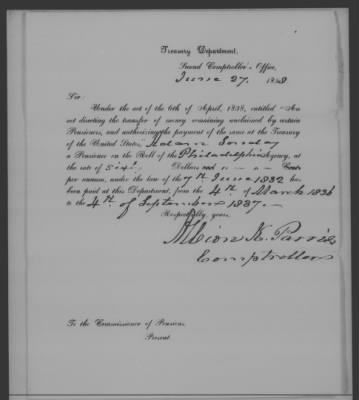 Treasury Department,
Second Comptroller's Office,
June 27. 1838.
Sir:
Under the act of the 6th of April, 1838, entitled "An
act directing the transfer of money remaining unclaimed by certain
Pensioners, and authorizing the payment of the same at the Treasury
of the United States," Adam
a Pensioner on the Roll of the Philadelphia Agency, at
the rate of Dollars and Cents
per annum, under the law of the 7th June 1832 has
been paid at this Department, from the 4th of March 1836
to the 4th of September 1837.
Respectfully, yours,
Albion K. Parris
Comptroller
To the Commissioner of Pensions,
Present.